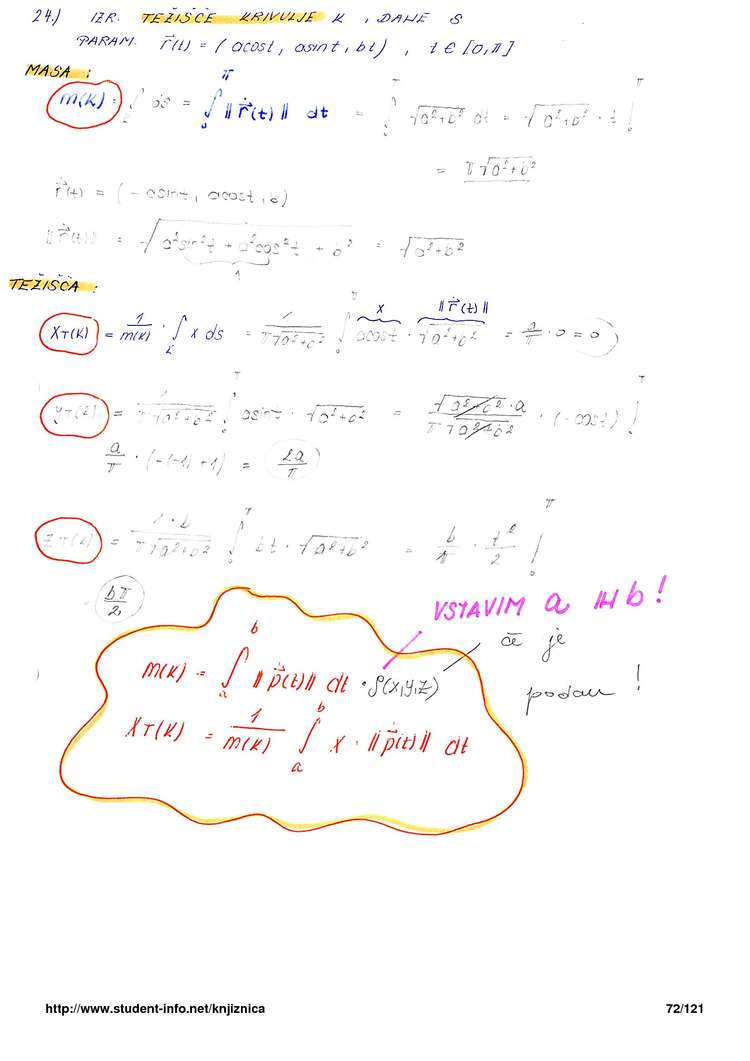 24.) IZR. TEŽIŠČE KRIVULJE K, DANE S
PARAM. r⃗(t) = (acost, asint, bt), t ∈ [0,π]
MASA:
m(K) = ∫_K ds = ∫_0^π ||ṙ⃗(t)|| dt = ∫_0^π √(a²+b²) dt = √(a²+b²) · t |_0^π
= π√(a²+b²)
ṙ⃗(t) = (-asint, acost, b)
||ṙ⃗(t)|| = √(a²sin²t + a²cos²t + b²) = √(a²+b²)
1
TEŽIŠČA:
x ||ṙ⃗(t)||
X_T(K) = 1/m(K) · ∫_K x ds = 1/(π√(a²+b²)) ∫_0^π acost · √(a²+b²) = a/π · 0 = 0
Y_T(K) = 1/(π√(a²+b²)) ∫_0^π asint · √(a²+b²) = (√(a²+b²) · a)/(π√(a²+b²)) · (-cost) |_0^π
a/π · (-(-1)+1) = 2a/π
Z_T(K) = (1·b)/(π√(a²+b²)) ∫_0^π bt · √(a²+b²) = b/π · t²/2 |_0^π
= bπ/2
VSTAVIM a IN b!
če je
podan!
m(K) = ∫_a^b ||ṗ⃗(t)|| dt · ρ(x,y,z)
X_T(K) = 1/m(K) ∫_a^b x · ||ṗ⃗(t)|| dt
http://www.student-info.net/knjiznica 72/121